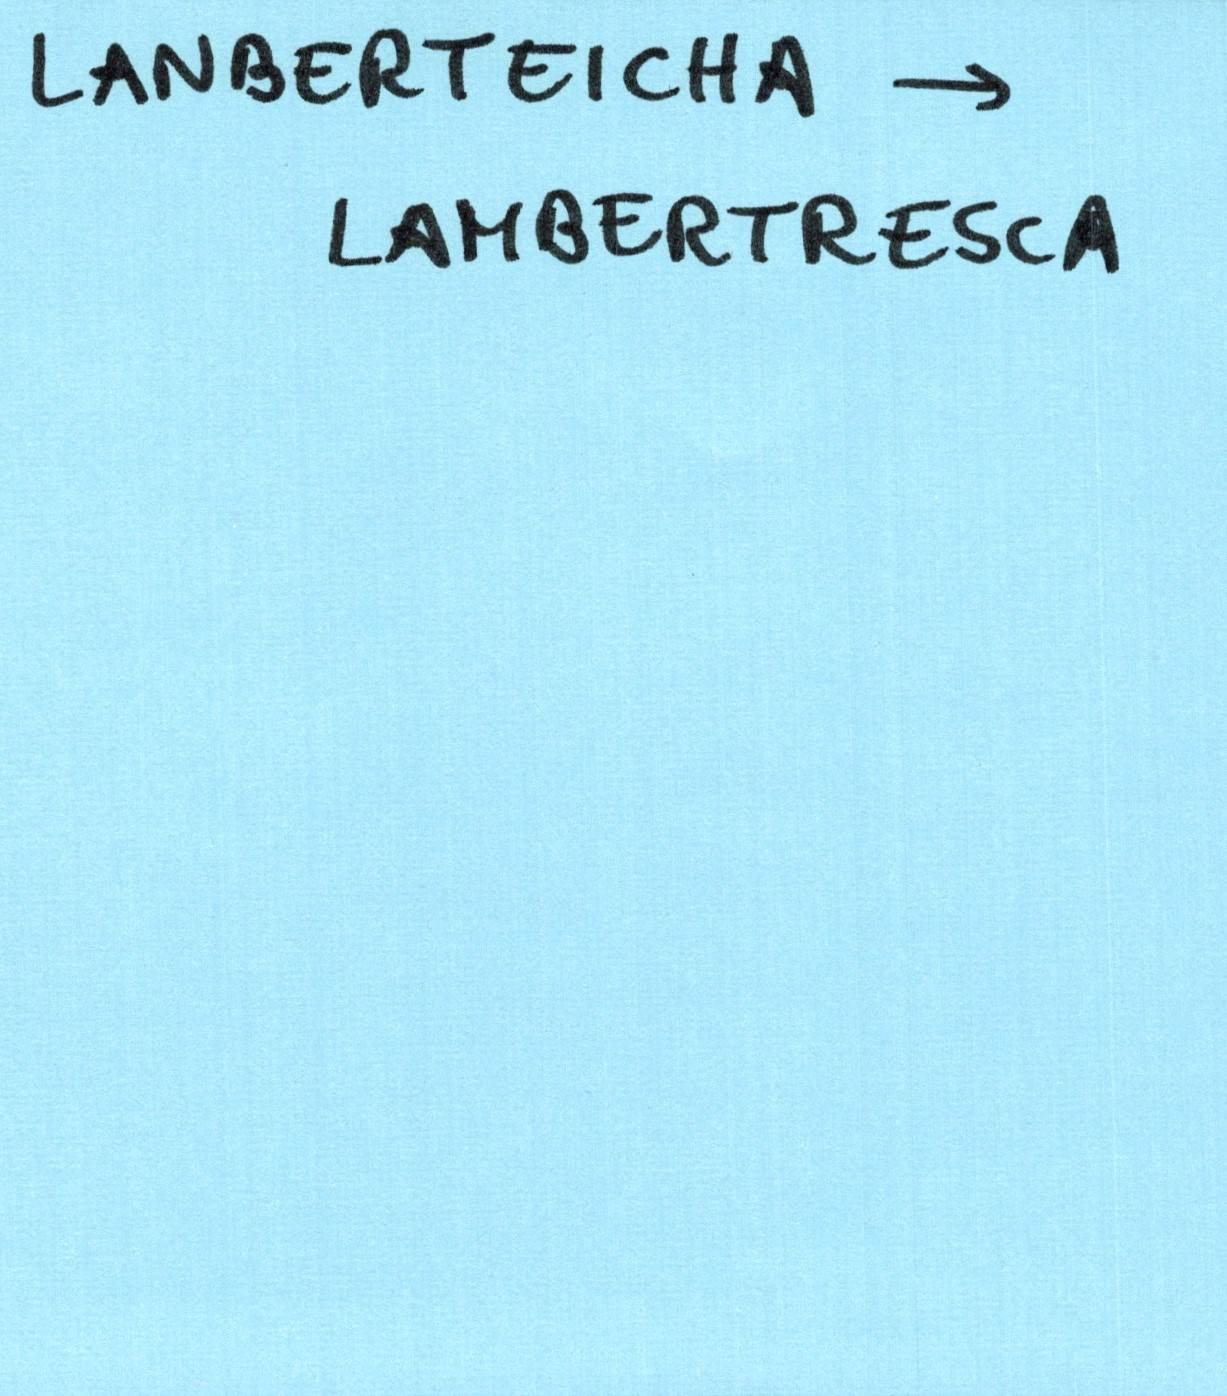 LANBERTEICHA →
LAMBERTRESCA